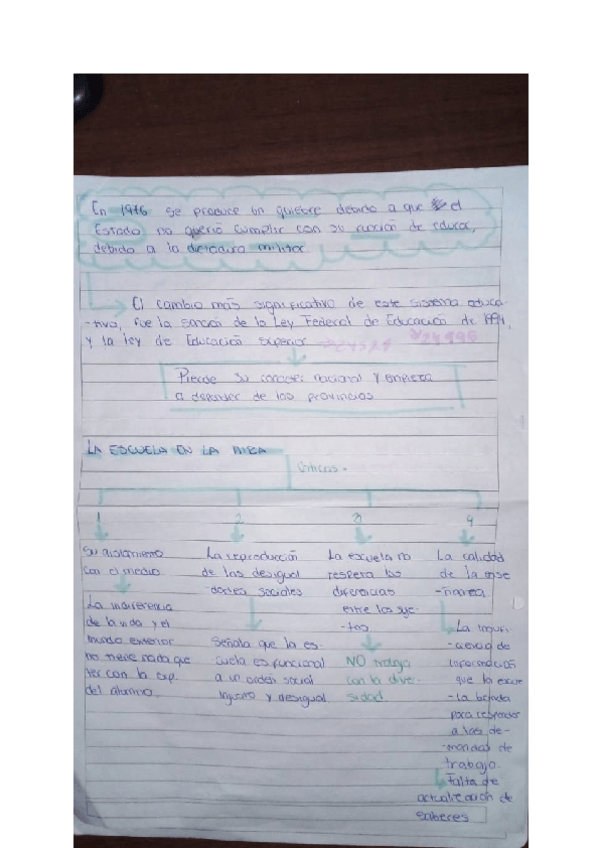 En 1976 se produce un quiebre debido a que el
Estado no queria cumplir con su función de educar,
debido a la dictadura militar.
El cambio más significativo de este sistema educa-
-tivo, fue la sanción de la Ley Federal de Educación de 1994,
y la ley de Educación Superior
Pierde su caracter nacional y empieza
a depender de las provincias
LA ESCUELA EN LA MIRA
Criticas.
1 2 3 4
Su aislamiento
con el medio
La indiferencia
de la vida y el
mundo exterior
no tiene nada que
ver con la exp.
del alumno.
La reproducción
de las desigual
-dades sociales
Señala que la es-
cuela es funcional
a un orden social
injusto y desigual
La escuela no
respeta las
diferencias
entre los suje-
-tos
NO trabaja
con la diver
sidad
La calidad
de la ense
-ñanza
La insufi-
-ciencia de
información
que la escue
-la brinda
para responder
a las de-
-mandas de
trabajo.
Falta de
actualización de
saberes